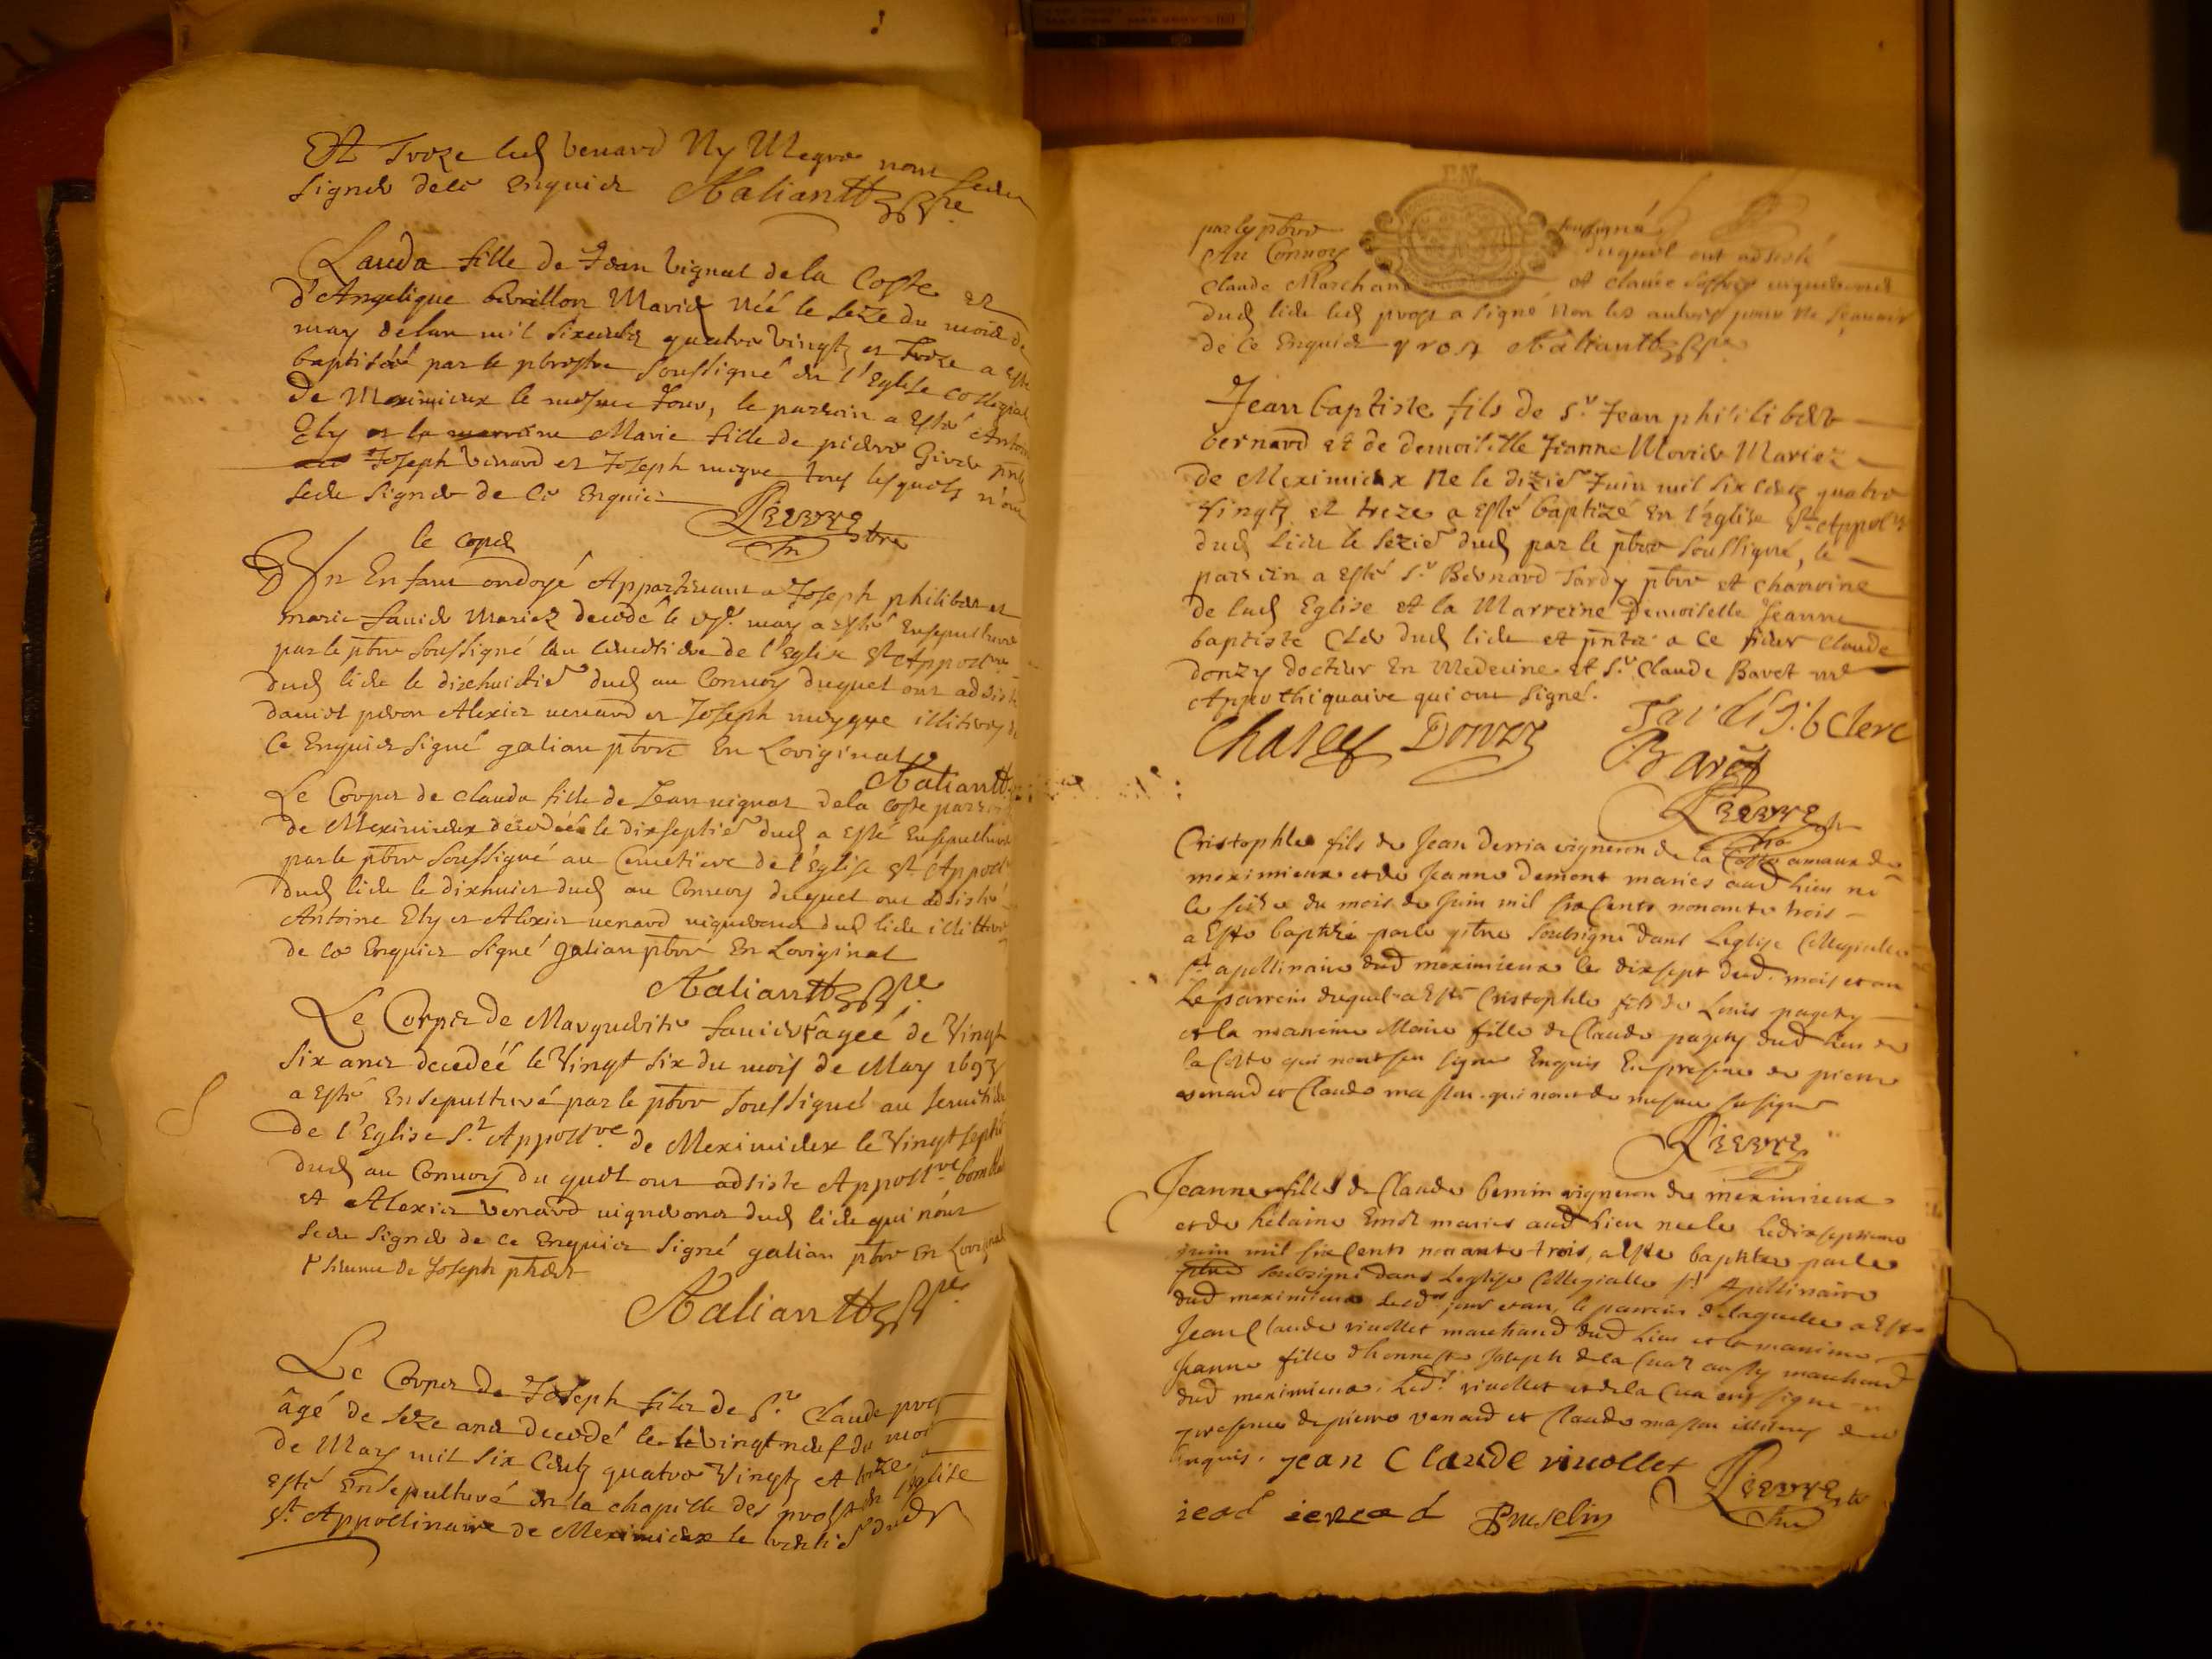 Et treze led venard Ny Megre nont sceu
signer de ce Enquier Galianttz ptre
Lauda fille de Jean vignat de la Coste et
d'Angelique Mariez née le seze du mois de
may de lan mil sixcentz quatre vingtz et treze a esté
baptisée par le prebstre soussigné en l'Eglise collegial
de Meximieux le mesme Jour, le parrain a esté Antoine
Ely et la marraine Marie fille de pierre Giver pnts
Joseph venard et Joseph megre tous lesquels n'ont
sceu signer de ce Enquier
le corps
Un Enfant ondoyé Appartenant a Joseph philibert et
marie fauier Mariez decedé le may a esté Ensepulturé
par le ptre soussigné au cimetiere de l'Eglise St Appollre
dud lieu le dixhuictie dud au Convoy duquel ont adsisté
Alexier venard et Joseph meygre illiterez de
Ce Enquier signé galian ptre En Loriginal
Galianttz
Le Corps de claude fille de Jean vignat de la Coste parroisse
de Meximieux decedéé le dixseptie dud a esté Ensepulturé
par le ptre soussigné au Cemetiere de l'Eglise St Appoll
dud lieu le dixhuict dud au Convoy duquel ont adsisté
Antoine Ely et Alexier venard vignerons dud lieu illitterez
de ce Enquier signé galian ptre En Loriginal
Galianttz ptre
Le Corps de Marguerite fauier âgeé de Vingt
six ans decedéé le Vingt six du mois de May 1693
a esté Ensepulturé par le ptre soussigné au semetiere
de l'Eglise St Appollre de Meximieux le Vingt septie
dud au Convoy du quel ont adsisté Appollre
et Alexier venard vignerons dud lieu qui n'ont
sceu signer de ce Enquier signé galian ptre En Loriginal
femme de Joseph phbert
Galianttz ptre
Le Corps de Joseph fils de Sr Claude prost
âgé de seze ans decedé le Vingt neuf du mois
de May mil six Centz quatre Vingtz et treze a
esté Ensepulturé en la chapelle des prost en l'Eglise
St Appollinaire de Meximieux le trentie dud
par le ptre soussigné
Au Convoy duquel ont adsisté
Claude Marchand et claude vignerons
dud lieu led prost a signé non les autres pour ne sçavoir
de ce Enquier prost Galianttz ptre
Jean baptiste fils de Sr Jean philibert
bernard et de demoiselle Jeanne Mariez
de Meximieux Ne le dizie Juin mil six centz quatre
vingtz et treze a esté baptizé en l'Eglise St Appolre
dud Lieu le sezie dud par le ptre soussigné, le
parrein a esté Sr Bernard Tardy ptre et chanoine
de lad Eglise et la Marreine Demoiselle Jeanne
baptiste Cler dud lieu et pntz a ce sieur Claude
donzy docteur En Medecine et Sr Claude Bavet
Appothiquaire qui ont signé.
Donzy J. b Clerc
Bavet
Cristophle fils de Jean Derria vigneron de la Coste
meximieux et de Jeanne Demont maries aud Lieu né
le seize du mois de Juin mil six Cents nonante trois
a Esté baptizé par le ptre soubsigné dans Leglise Collegialle
St apollinaire dud meximieux le dixsept dud. mois et an
Le parrein duquel a esté Cristophle fils de Louis pagety
et la marreine Marie fille de Claude pagety dud Lieu de
la Coste qui nont sceu signer Enquis En presence de pierre
venard et Claude masson qui nont de mesme sceu signer
Jeanne fille de Claude bernin vigneron de meximieux
et de helaine maries aud Lieu neele Ledixseptieme
juin mil six Cents nonante trois, a esté baptizee parle
ptre soubsigné dans Leglise Collegialle St Apollinaire
dud meximieux Lesd jour et an, le parrein delaquelle a Esté
Jean Claude vinollet marchand dud Lieu et la marreine
Jeanne fille dhonneste Joseph dela Cua aussy marchand
dud meximieux. Led. vinollet et dela Cua ont signé en
presence de pierre venard et Claude masson illiterez de ce
Enquis. jean Claude vinollet